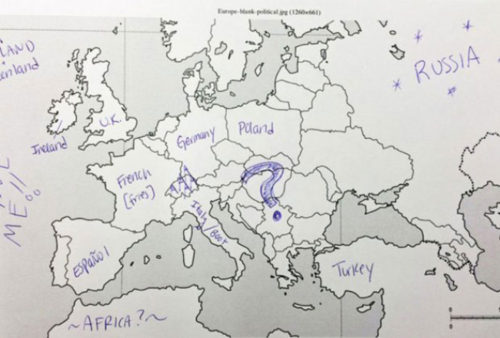 Europe-blank-political.jpg (1260×661)
LAND
inland
RUSSIA
U.K.
Ireland
Germany
Poland
French
[fries]
?
Italy/Boot
ME!!
ESPAÑOL
Turkey
~AFRICA?~
0